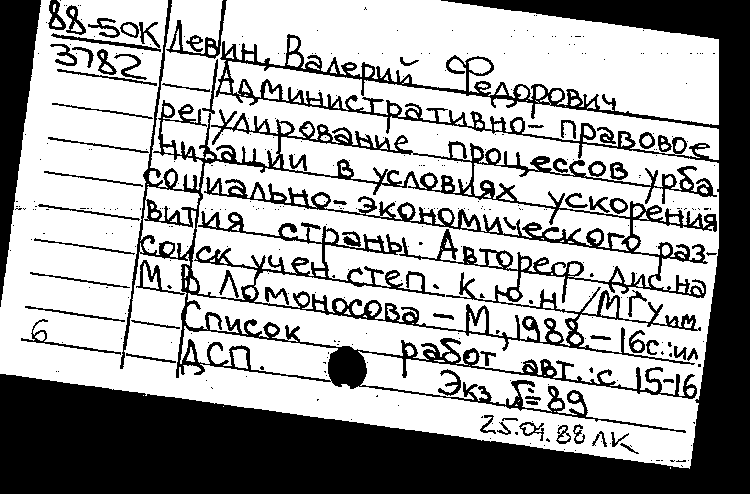 88-50К Левин, Валерий Федорович
3782 Административно-правовое
регулирование процессов урба-
низации в условиях ускорения
социально-экономического раз-
вития страны: Автореф. дис. на
соиск учен. степ. к.ю.н /МГУ им.
М.В. Ломоносова. – М., 1988. – 16с.:ил.
Список работ авт.: с. 15-16.
6 ДСП. Экз. №89
25.04.88 ЛК